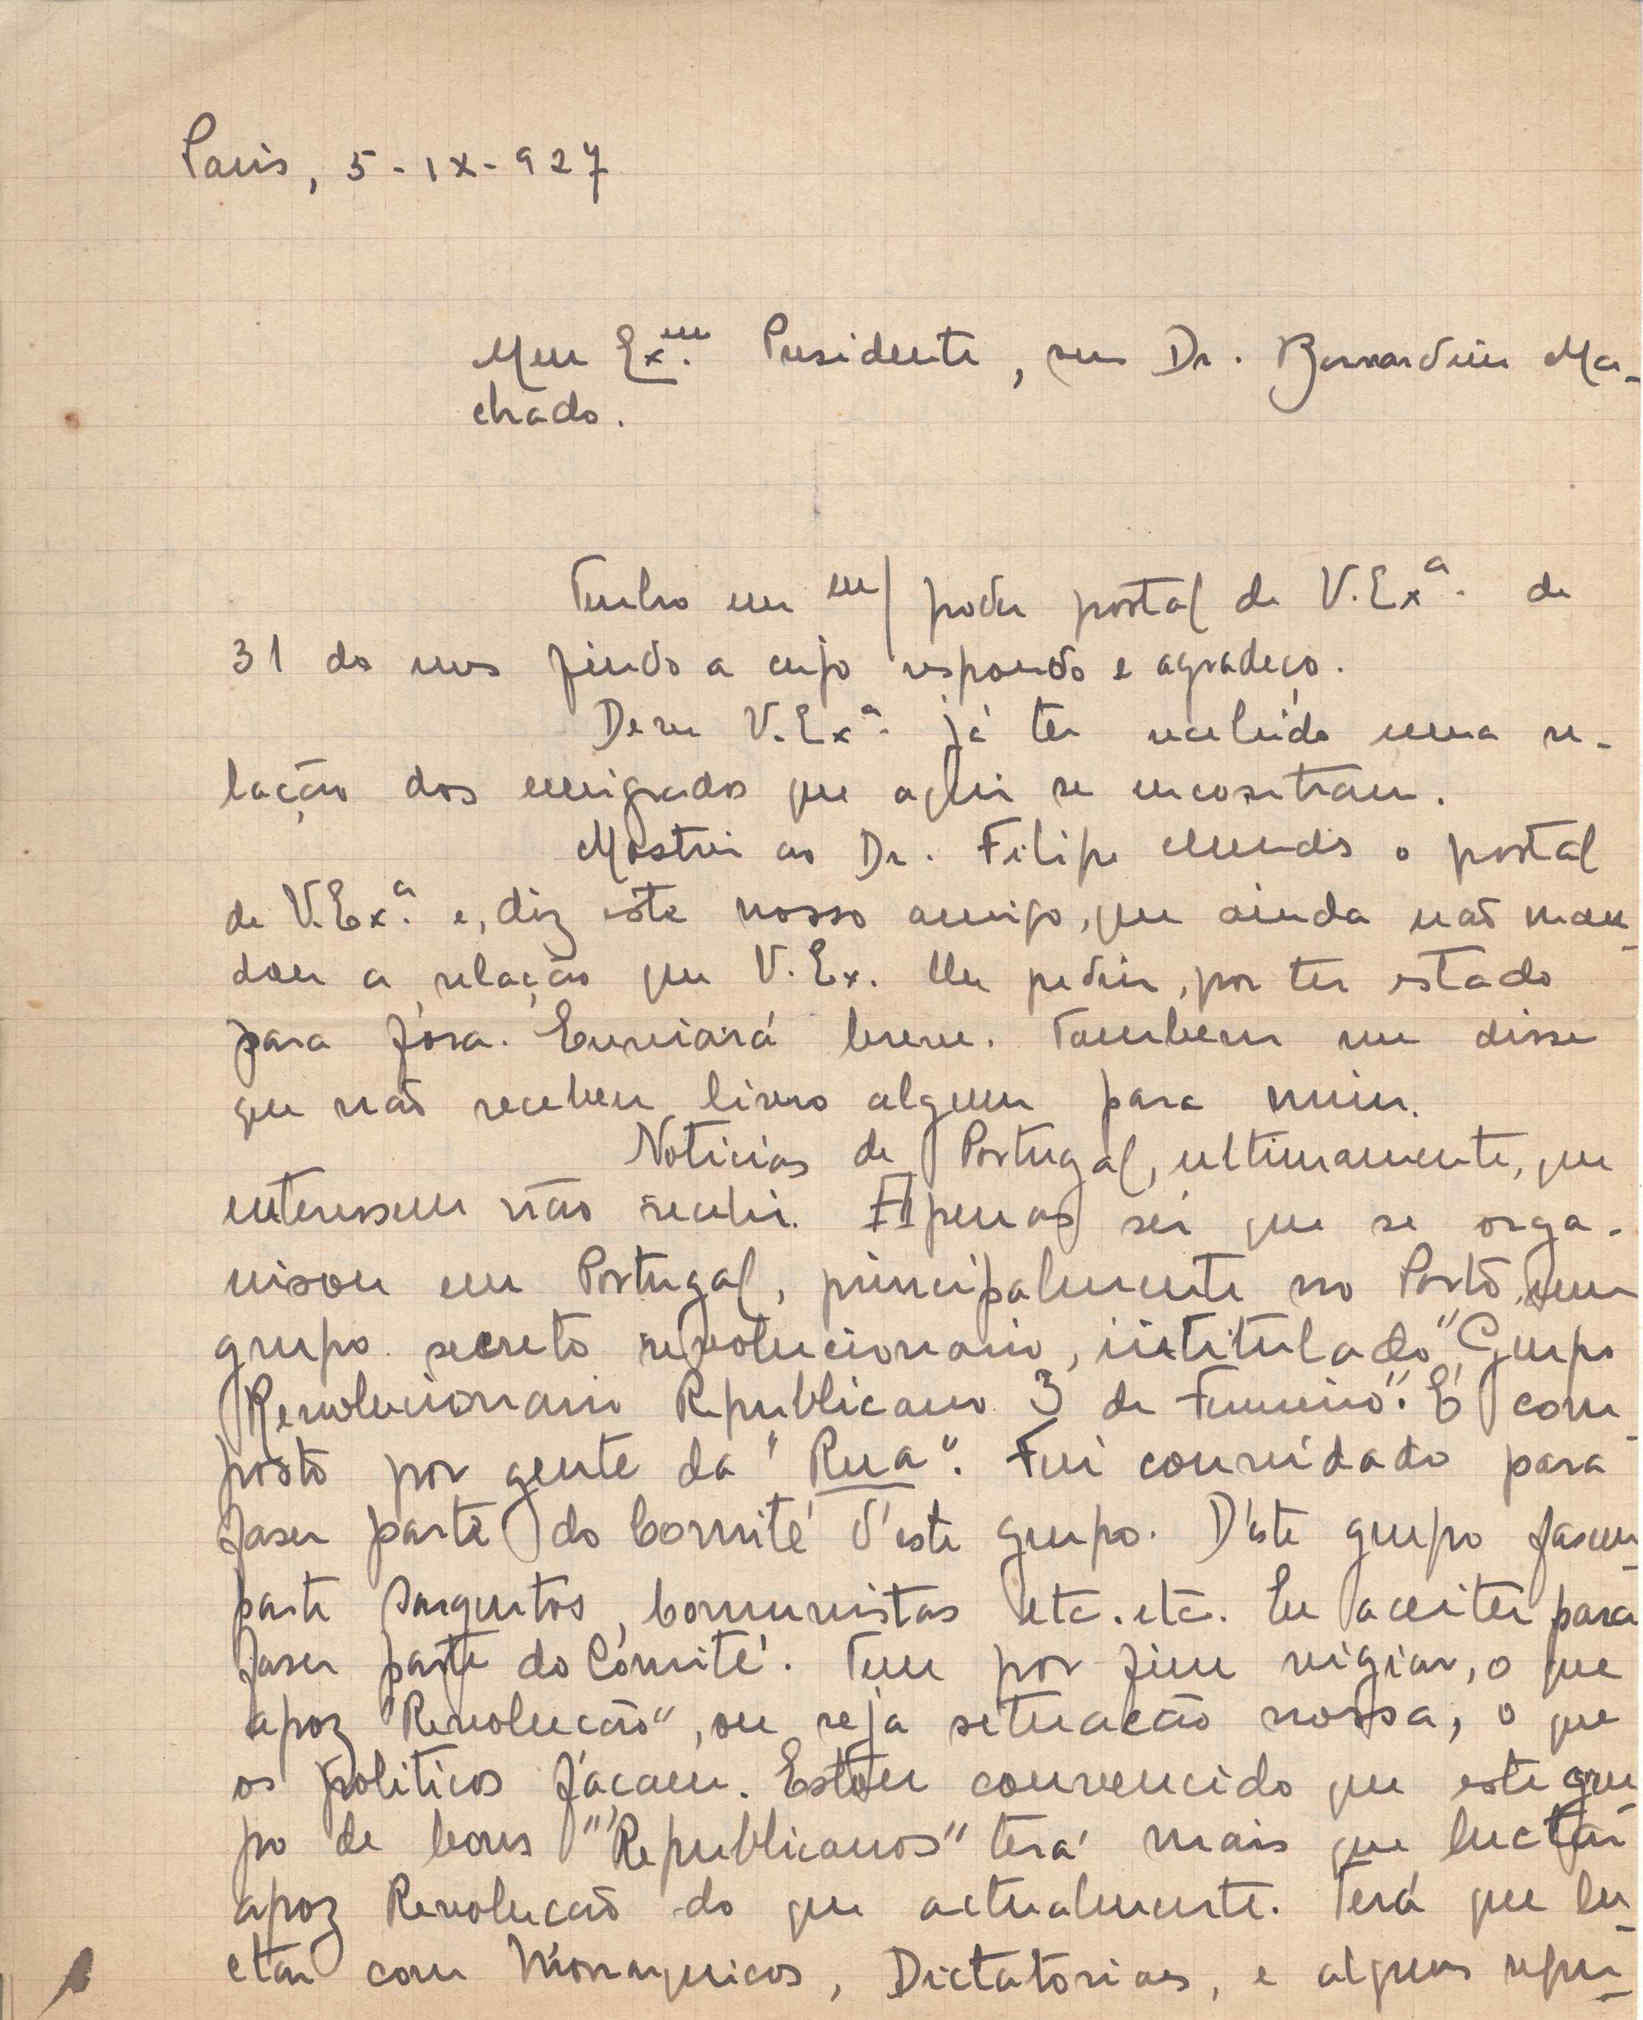 Paris, 5-IX-927
Meu Ex.mo Presidente, snr Dr. Bernardino Ma-
chado.
Tenho em m/ poder postal de V.Exª. de
31 do mes findo a cujo respondo e agradeço.
Deve V.Exª. já ter recebido uma re-
lação dos emigrados que aqui se encontram.
Mostrei ao Dr. Filipe Mendes o postal
de V.Exª. e, diz este nosso amigo, que ainda não man-
dou a relação que V.Ex. lhe pediu, por ter estado
para fóra. Enviará breve. Tambem me disse
que não recebeu livro algum para mim.
Noticias de Portugal, ultimamente, que
interessem não recebi. Apenas sei que se orga-
nisou em Portugal, principalmente no Porto, um
grupo secreto revolucionario, intitulado "Grupo
Revolucionario Republicano 3 de Fevereiro". É com-
posto por gente da "Rua". Fui convidado para
faser parte do Comité d'este grupo. D'este grupo fasem
parte Sargentos, Comunistas etc. etc. Eu aceitei para
faser parte do Comité. Tem por fim vigiar, o que
apoz "Revolução", ou seja situação nossa, o que
os politicos fáçam. Estou convencido que este gru-
po de bons "Republicanos" terá mais que luctar
apoz Revolução do que actualmente. Terá que lu-
ctar com Monarquicos, Dictatoriaes, e alguns repu-